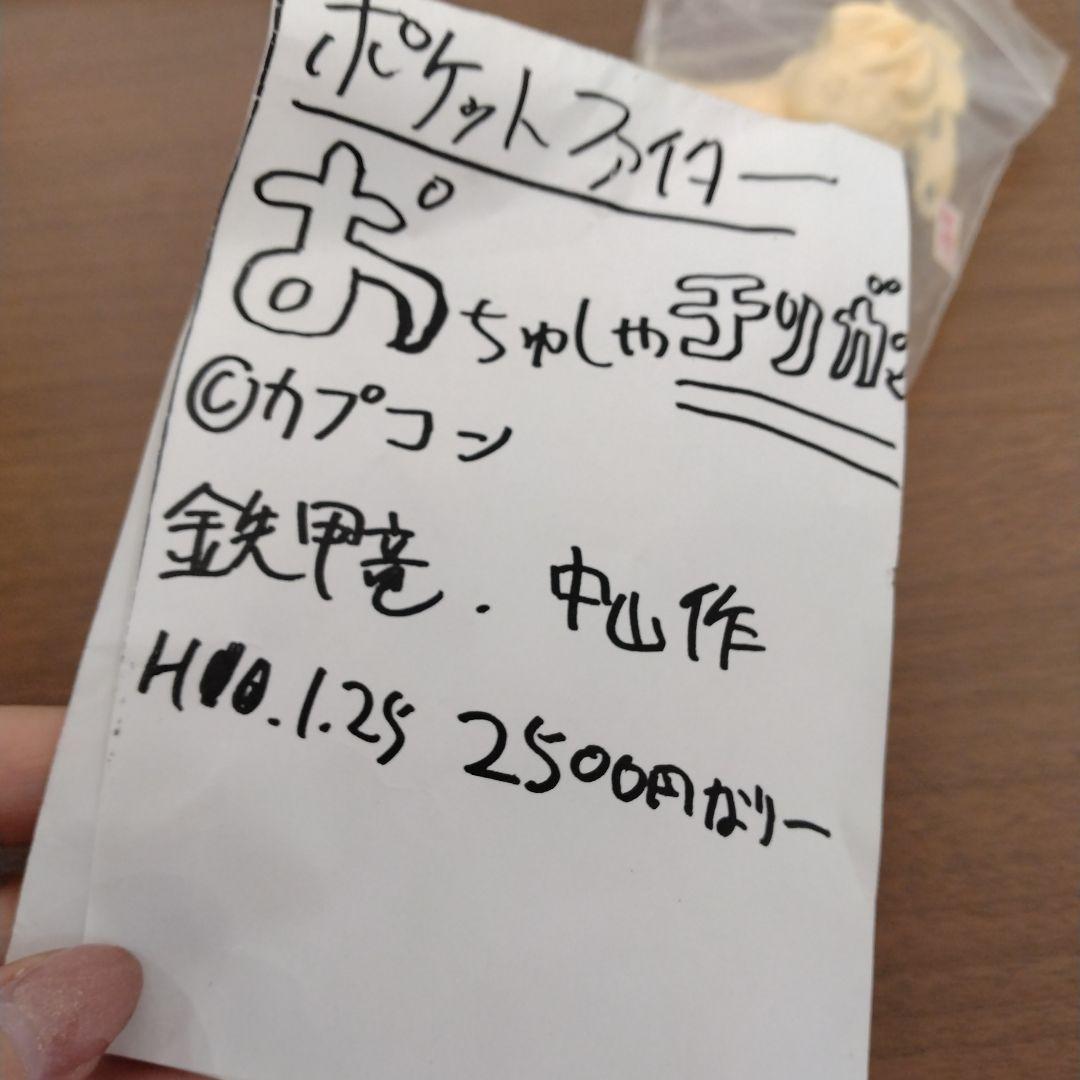 ポケットファイター
おちゅしゃヲリガ
©カプコン
鉄甲竜.中山作
H10.1.25 2500円なりー